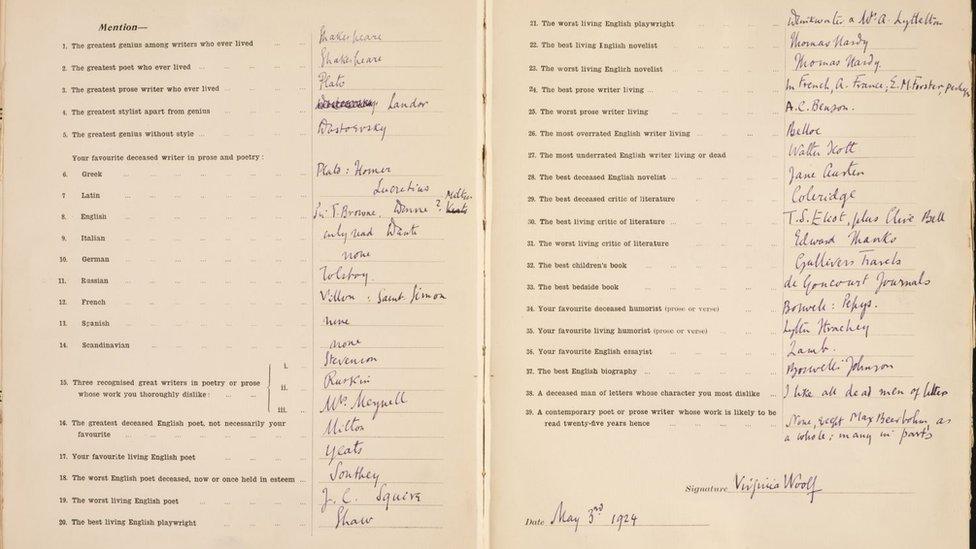 Mention—
1. The greatest genius among writers who ever lived ... ... Shakespeare
2. The greatest poet who ever lived ... Shakespeare
3. The greatest prose writer who ever lived ... Plato
4. The greatest stylist apart from genius ... Landor
5. The greatest genius without style ... Dostoevsky
Your favourite deceased writer in prose and poetry :
6. Greek ... Plato : Homer
7 Latin ... Lucretius
8. English ... Sir T. Browne. Donne ? Milton Keats
9. Italian ... only read Dante
10. German ... none
11. Russian ... Tolstoy
12. French ... Villon : Saint Simon
13. Spanish ... none
14. Scandinavian ... none
15. Three recognised great writers in poetry or prose whose work you thoroughly dislike :
i. Stevenson
ii. Ruskin
iii. Mrs. Meynell
16. The greatest deceased English poet, not necessarily your
favourite ... Milton
17. Your favourite living English poet ... Yeats
18. The worst English poet deceased, now or once held in esteem ... Southey
19. The worst living English poet ... J. C. Squire
20. The best living English playwright ... Shaw
21. The worst living English playwright ... Drinkwater & Mr. A. Lyttelton
22. The best living English novelist ... Thomas Hardy
23. The worst living English novelist ... Thomas Hardy.
24. The best prose writer living ... In French, A. France; E. M. Forster, perhaps
25. The worst prose writer living ... A. C. Benson.
26. The most overrated English writer living ... Belloc
27. The most underrated English writer living or dead ... Walter Scott
28. The best deceased English novelist ... Jane Austen
29. The best deceased critic of literature ... Coleridge
30. The best living critic of literature ... T. S. Eliot, plus Clive Bell
31. The worst living critic of literature ... Edward Shanks
32. The best children's book ... Gullivers Travels
33. The best bedside book ... de Goncourt Journals
34. Your favourite deceased humorist (prose or verse) ... Boswell : Pepys.
35. Your favourite living humorist (prose or verse) ... Lytton Strachey
36. Your favourite English essayist ... Lamb.
37. The best English biography ... Boswells' Johnson
38. A deceased man of letters whose character you most dislike ... I like all dead men of letters
39. A contemporary poet or prose writer whose work is likely to be
read twenty-five years hence ... None, except Max Beerbohm, as
a whole; many in parts
Signature Virginia Woolf
Date May 3rd 1924